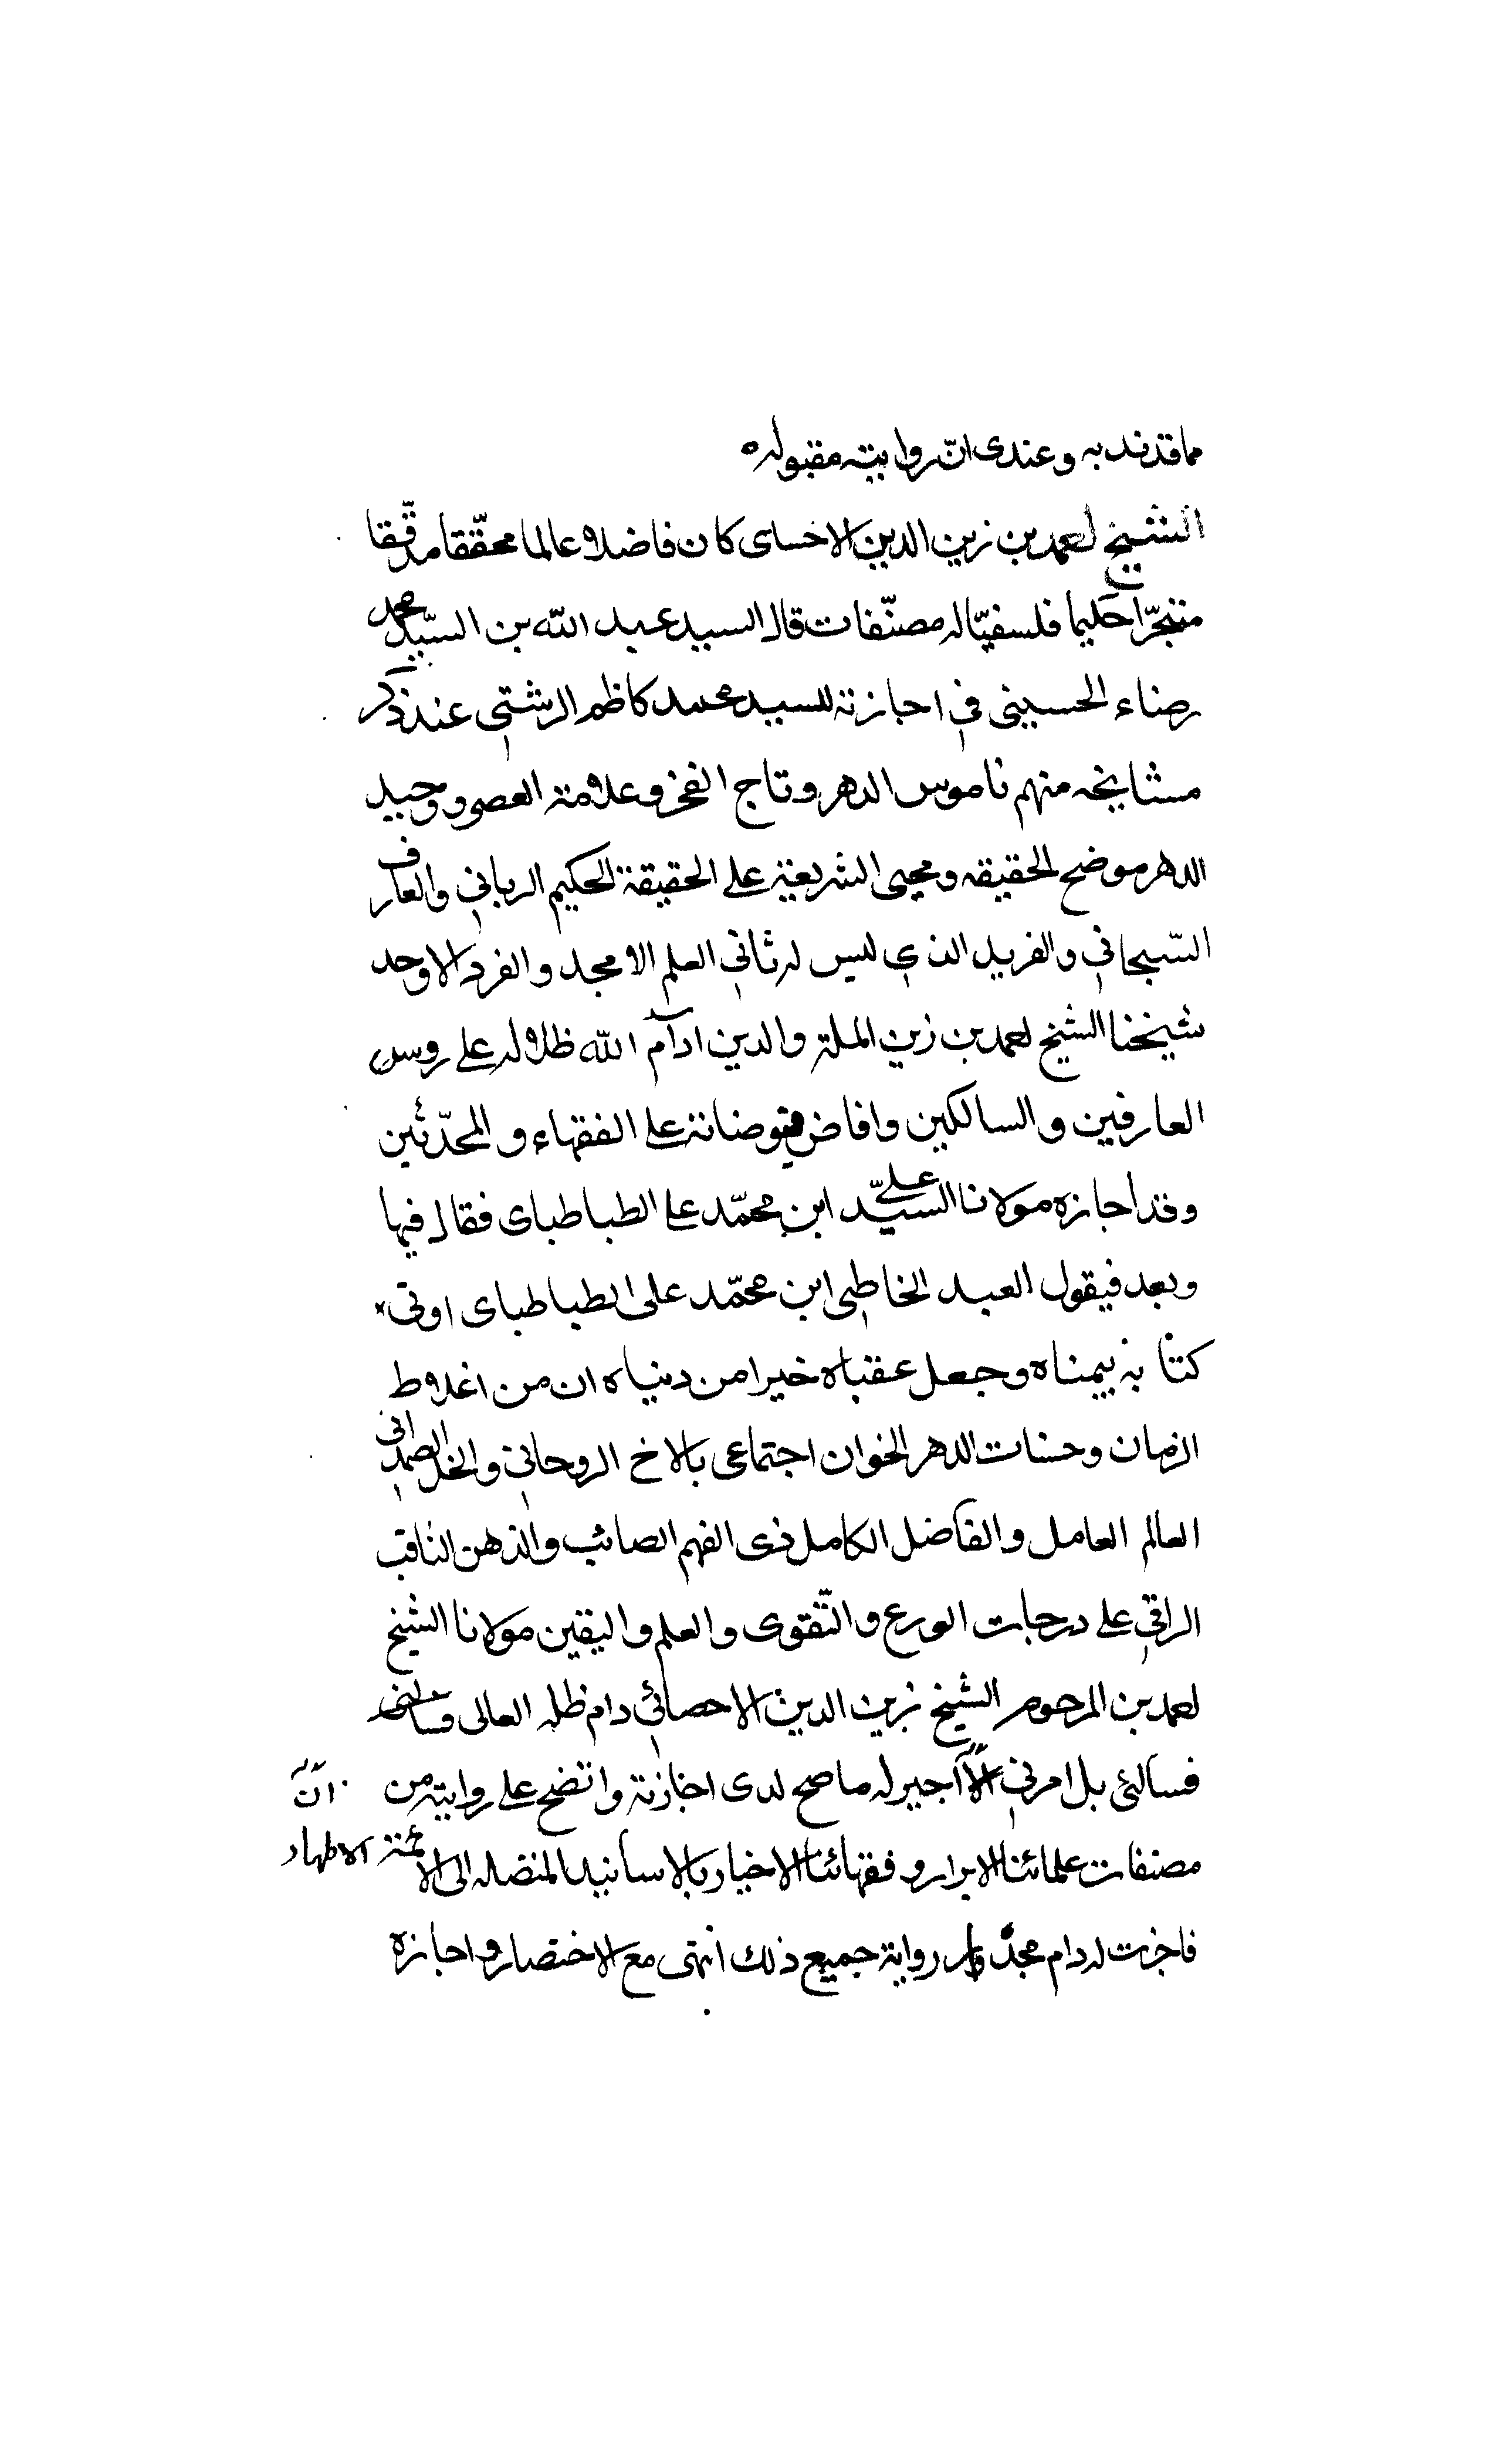 مما قد ند به وعندى انّ روايته مقبوله
الشيخ احمد بن زين الدين الاحساى كان فاضلا عالما محقّقا مدقّقا
متبحّرا حكيما فلسفيّا له مصنّفات قال السيد عبد الله بن السيّد محمد
رضاء الحسينى في اجازته للسيد محمد كاظم الرشتي عند ذكر
مشايخه منهم ناموس الدهر وتاج الفخر وعلامة العصر ووحيد
الدهر موضح الحقيقه ومحيى الشريعة على الحقيقة الحكيم الرباني والعارف
السّبحاني والفريد الذي ليس له ثاني العلم الامجد والفرد الاوحد
شيخنا الشيخ احمد بن زين الملة والدين ادام الله ظلاله على روس
العارفين والسالكين وافاض فيوضاته على الفقهاء والمحدّثين
وقد اجازه مولانا السيّد علي ابن محمّد على الطباطباى فقال فيها
وبعد فيقول العبد الخاطى ابن محمّد على الطباطباى اوتى
كتابه بيمناه وجعل عقباه خيرا من دنياه ان من اغلاط
الزمان وحسنات الدهر الخوان اجتماعى بالاخ الروحاني والخل الصمداني
العالم العامل والفاضل الكامل ذى الفهم الصائب والذهن الثاقب
الراقي على درجات الورع والتّقوى والعلم واليقين مولانا الشيخ
احمد بن المرحوم الشيخ زين الدين الاحصائي دام ظله العالى فسالنى
فسالنى بل امرني اجيز له ما صح لدى اجازته واتضح على روايته من انّ
مصنفات علمائنا الابرار وفقهائنا الاخيار بالاسانيد المتصله الى الائمة الاطهار
فاجزت له دام مجده رواية جميع ذلك انتهى مع الاختصار واجازه